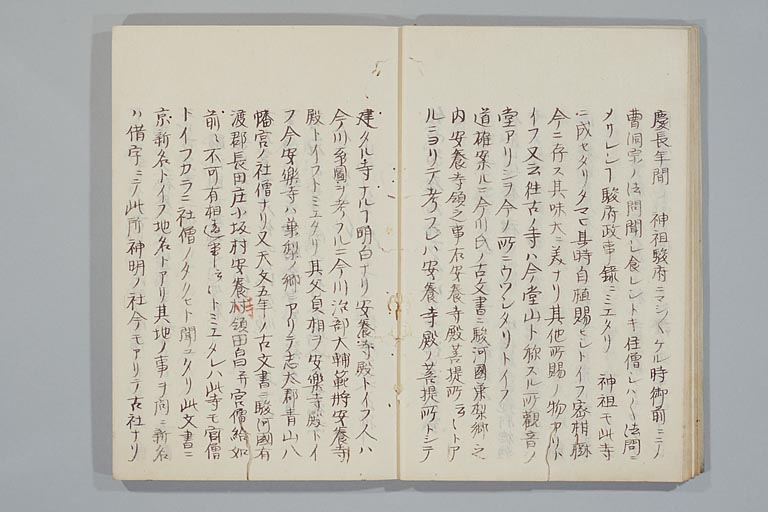 慶長年間　神祖駿府ニマシ〱ケル時御前ニテ
曹洞宗ノ法問聞レ食レントキ住僧レハ〱法問ニ
メサレシ丁駿府政事録ニミエタリ　神祖モ此寺
ニ成セタリタマヒ其時自植賜セシトイフ蜜柑縣
今ニ存ス其味大ニ美ナリ其他所賜ノ物アリト
イフ又云往古ノ寺ハ今堂山ト称スル所観音ノ
堂アリシヲ今ノ所ニウツシタリトイフ
道確案ルニ今川氏ノ古文書ニ駿河國葉梨郷之
内安養寺領之事右安養寺殿菩提所云〻トア
ルニヨリテ考フレハ安養寺殿ノ菩提所トシテ
建タル寺ナル丁明白ナリ安養寺殿トイフ人ハ
今川系圖ヲ考フルニ今川治部大輔範将安養寺
殿トイフトミエタリ其父貞相ヲ安樂寺殿トイ
フ今安樂寺ハ葉梨ノ郷ニアリテ志太郡青山八
幡宮ノ社僧ナリ又天文五年ノ古文書ニ駿河國有
渡郡長田庄小坂村安養寺領田畠并宮僧給如
前〻不可有相違事云〻トミエタレハ此寺モ宮僧
トイフカラニ社僧ノタクヒト聞エタリ此文書ニ
京新名トイフ地名トアリ其地ノ事ヲ問ニ新名
ハ借字ニテ此所神明ノ社今モアリテ古社ナリ